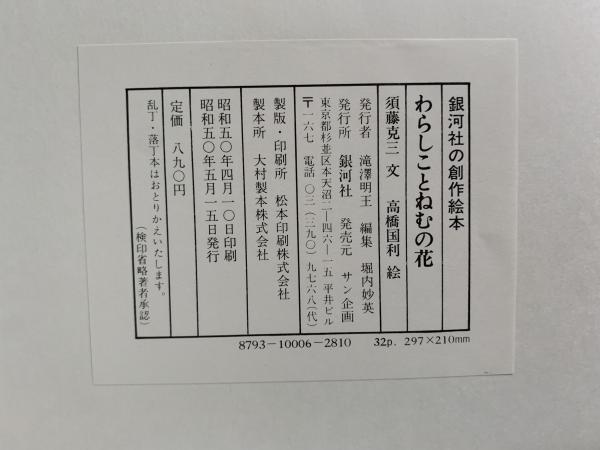 銀河社の創作絵本
わらしことねむの花
須藤克三 文　高橋国利 絵
発行者　滝澤明王　編集　堀内妙英
発行所　銀河社　発売元　サン企画
東京都杉並区本天沼二―四六―一五 平井ビル
〒一六七　電話　〇三(三九〇)九七六八(代)
製版・印刷所　松本印刷株式会社
製本所　大村製本株式会社
昭和五〇年四月一〇日印刷
昭和五〇年五月一五日発行
定価　八九〇円
乱丁・落丁本はおとりかえいたします。
(検印省略著者承認)
8793-10006-2810　32p. 297×210mm